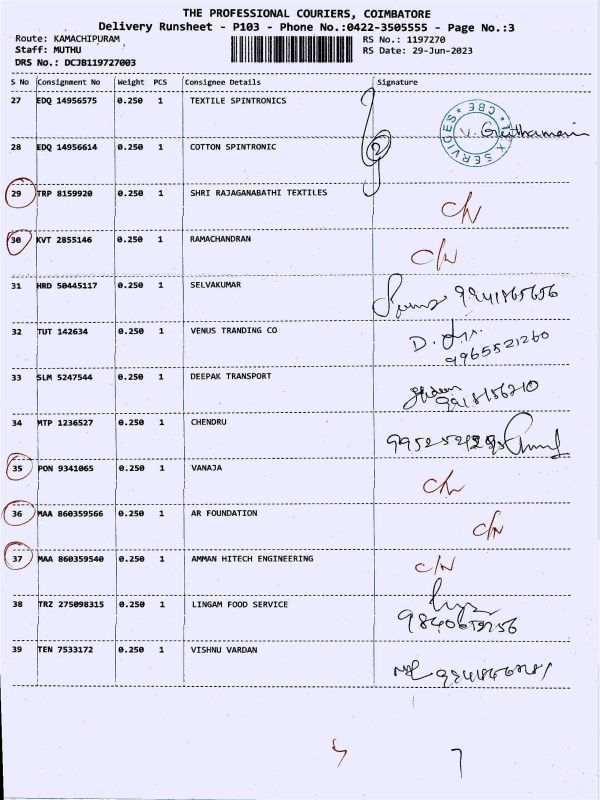 THE PROFESSIONAL COURIERS, COIMBATORE
Delivery Runsheet - P103 - Phone No.:0422-3505555 - Page No.:3
Route: KAMACHIPURAM RS No.: 1197270
Staff: MUTHU RS Date: 29-Jun-2023
DRS No.: DCJB119727003
S No Consignment No Weight PCS Consignee Details Signature
27 EDQ 14956575 0.250 1 TEXTILE SPINTRONICS
28 EDQ 14956614 0.250 1 COTTON SPINTRONIC
29 TRP 8159920 0.250 1 SHRI RAJAGANABATHI TEXTILES C/N
30 KVT 2855146 0.250 1 RAMACHANDRAN C/N
31 HRD 50445117 0.250 1 SELVAKUMAR
32 TUT 142634 0.250 1 VENUS TRANDING CO
9965521260
33 SLM 5247544 0.250 1 DEEPAK TRANSPORT
34 MTP 1236527 0.250 1 CHENDRU
35 PON 9341065 0.250 1 VANAJA C/N
36 MAA 860359566 0.250 1 AR FOUNDATION C/N
37 MAA 860359540 0.250 1 AMMAN HITECH ENGINEERING C/N
38 TRZ 275098315 0.250 1 LINGAM FOOD SERVICE
39 TEN 7533172 0.250 1 VISHNU VARDAN
5 7